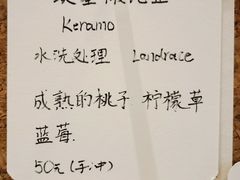 Keramo
水洗处理 Landrace
成熟的桃子 柠檬草
蓝莓.
50元(手冲)